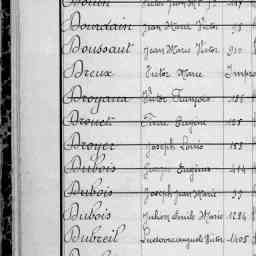 Bourdain Jean Marie Victor 98
Boussaut Jean Marie Victor 910
Breux Victor Marie Impro
Broyana Victor François 186
Brouet Pierre Eugène 125
Broyer Joseph Louis 153
Dubois Eugène 444
Dubois Joseph Jean Marie 33
Dubois Julien Emile Marie 1284
Dubreil Victor 1405